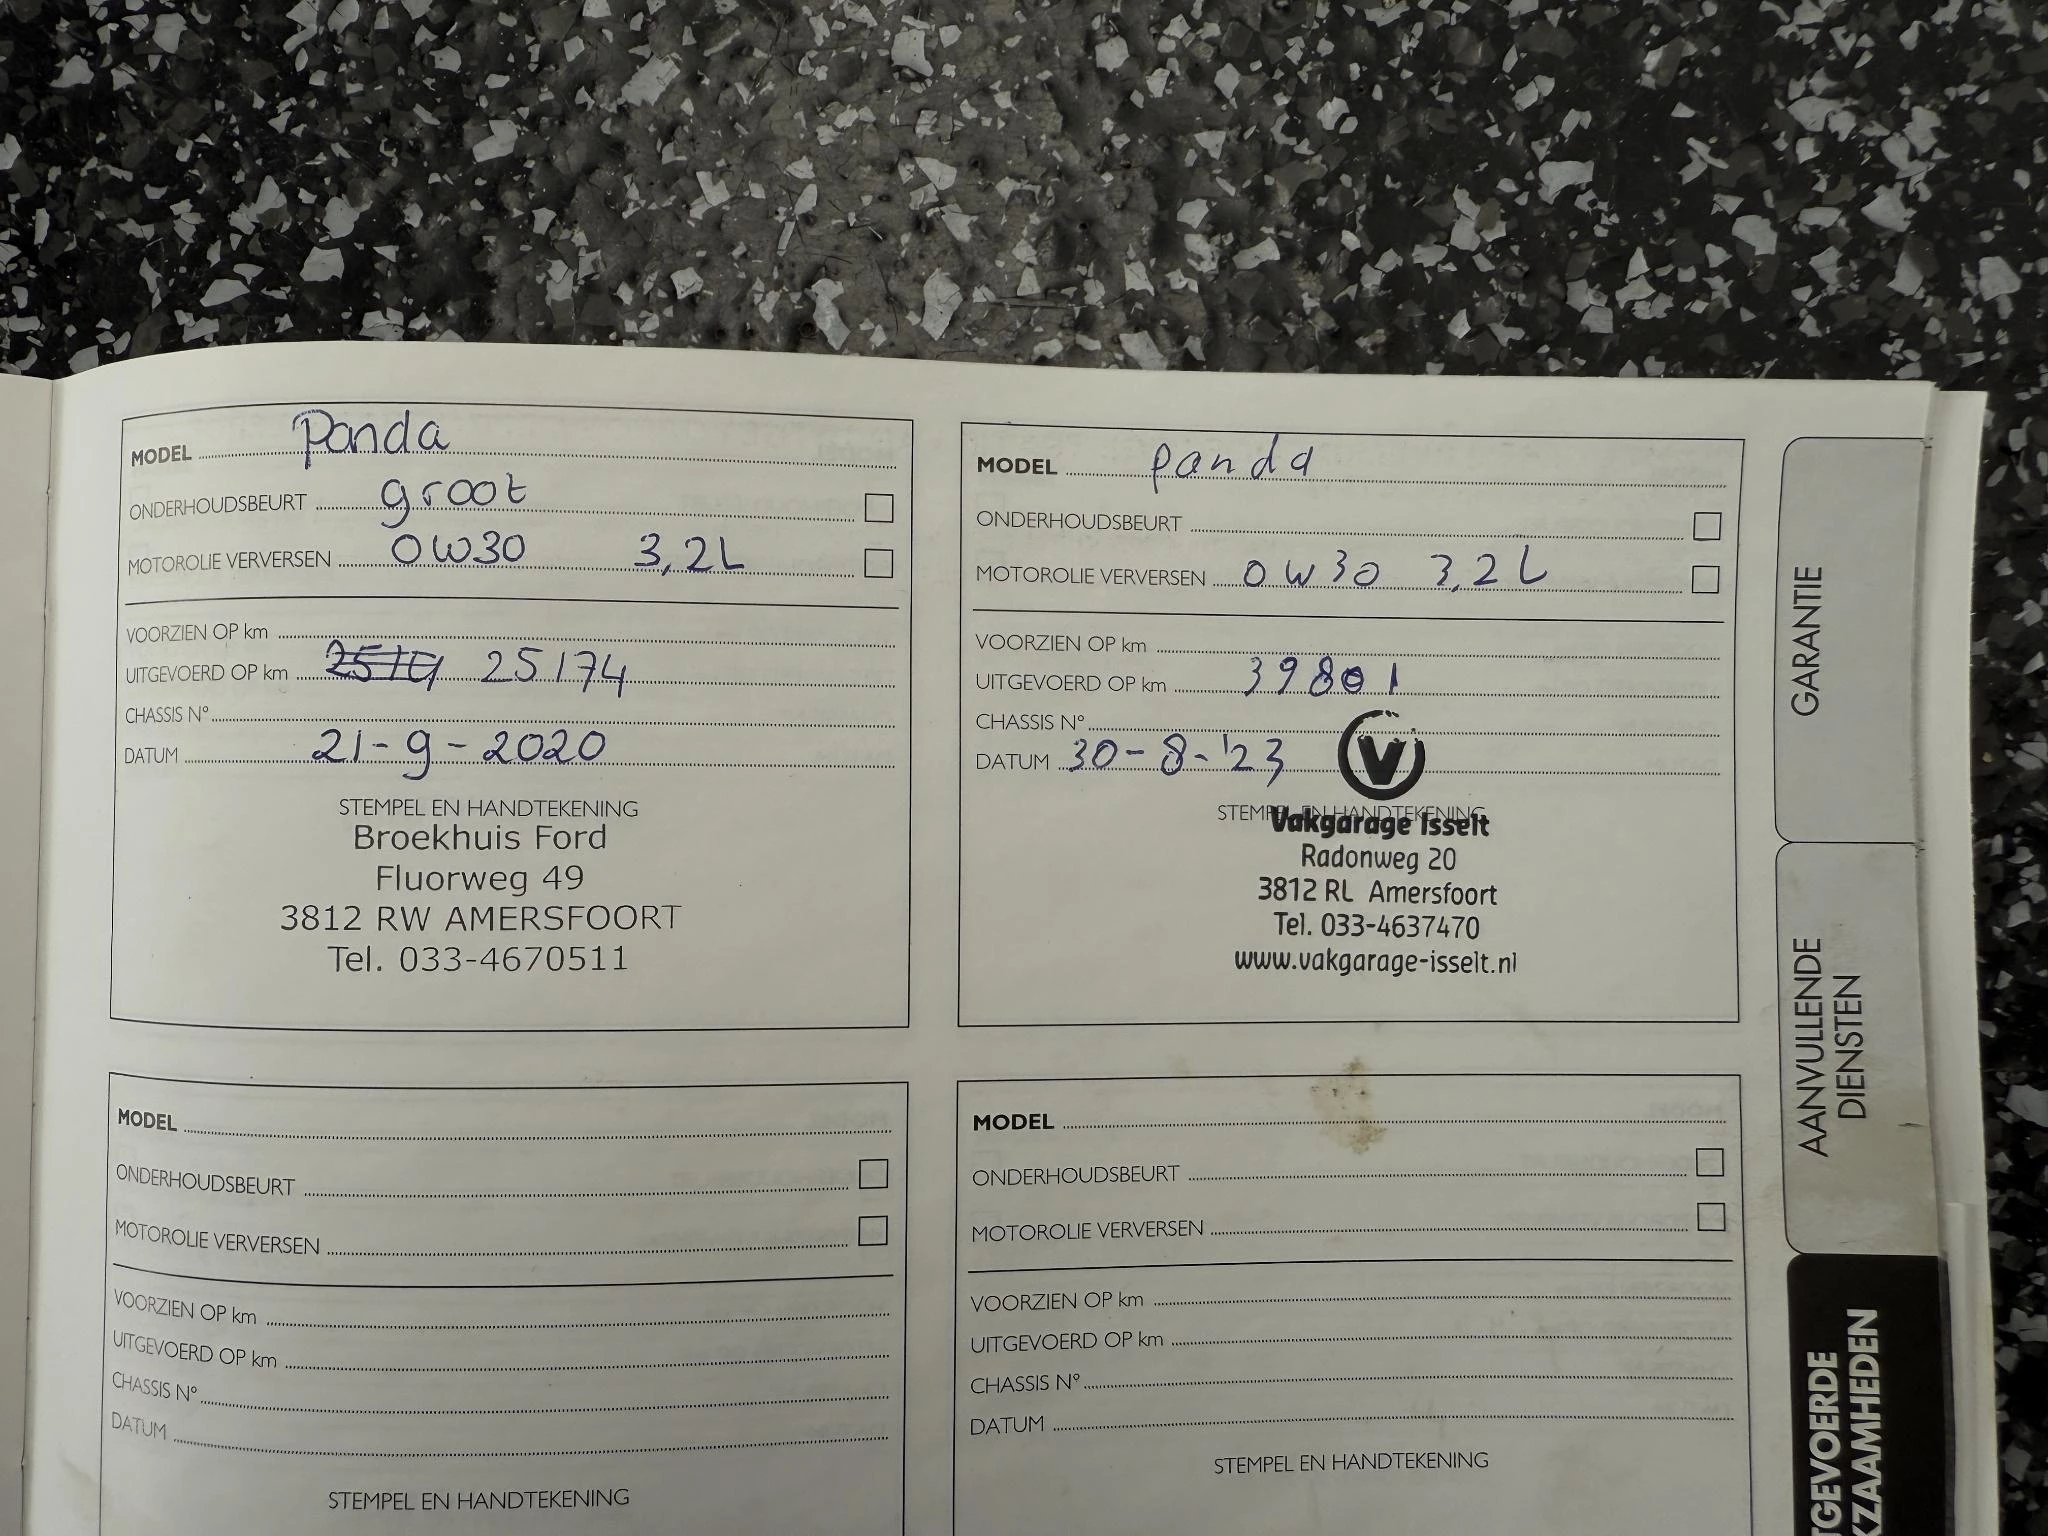 MODEL Panda
ONDERHOUDSBEURT groot
MOTOROLIE VERVERSEN 0W30 3,2L
VOORZIEN OP km
UITGEVOERD OP km 25174
CHASSIS Nº
DATUM 21-9-2020
STEMPEL EN HANDTEKENING
Broekhuis Ford
Fluorweg 49
3812 RW AMERSFOORT
Tel. 033-4670511
MODEL panda
ONDERHOUDSBEURT
MOTOROLIE VERVERSEN 0W30 3,2L
VOORZIEN OP km
UITGEVOERD OP km 39801
CHASSIS Nº
DATUM 30-8-'23
V
STEMPEL EN HANDTEKENING
Vakgarage Isselt
Radonweg 20
3812 RL Amersfoort
Tel. 033-4637470
www.vakgarage-isselt.nl
MODEL
ONDERHOUDSBEURT
MOTOROLIE VERVERSEN
VOORZIEN OP km
UITGEVOERD OP km
CHASSIS Nº
DATUM
STEMPEL EN HANDTEKENING
MODEL
ONDERHOUDSBEURT
MOTOROLIE VERVERSEN
VOORZIEN OP km
UITGEVOERD OP km
CHASSIS Nº
DATUM
STEMPEL EN HANDTEKENING
GARANTIE
AANVULLENDE
DIENSTEN
TGEVOERDE
KZAAMHEDEN